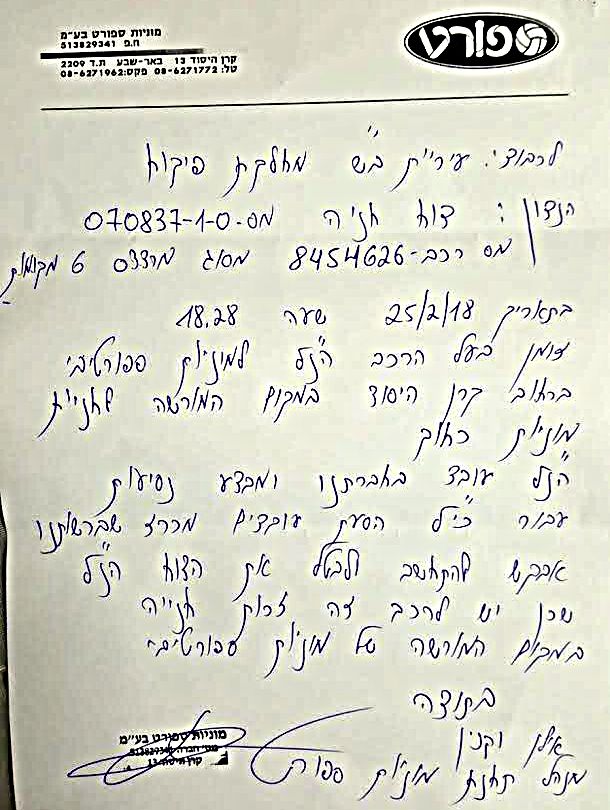 מוניות ספורט בע״מ
ח.פ 513829341
קרן היסוד 13 באר-שבע ת.ד 2209
טל: 08-6271772 פקס: 08-6271962
ספורט
לכבוד: עיריית ב״ש מחלקת פיקוח
הנדון: דוח חניה מס-070837-1-0
מס רכב-8454626 מסוג מרצדס 6 מקומות
בתאריך 25/2/18 שעה 18.28
זומן בעל הרכב הנ״ל למוניות ספורטיבי
ברחוב קרן היסוד במקום המורשה לחניית
מוניות כחוק
הנ״ל עובד בחברתנו ומבצע נסיעות
עבור כי״ל הסעת עובדים מכרז שברשותנו
אבקש להתחשב ולבטל את הדוח הנ״ל
שכן יש לרכב זה זכות חנייה
במקום המורשה של מוניות ספורטיבי
בתודה
אילן וקנין
מנהל תחנת מוניות ספורט
מוניות ספורט בע״מ
מס׳ חברה 513829341
קרן היסוד 13